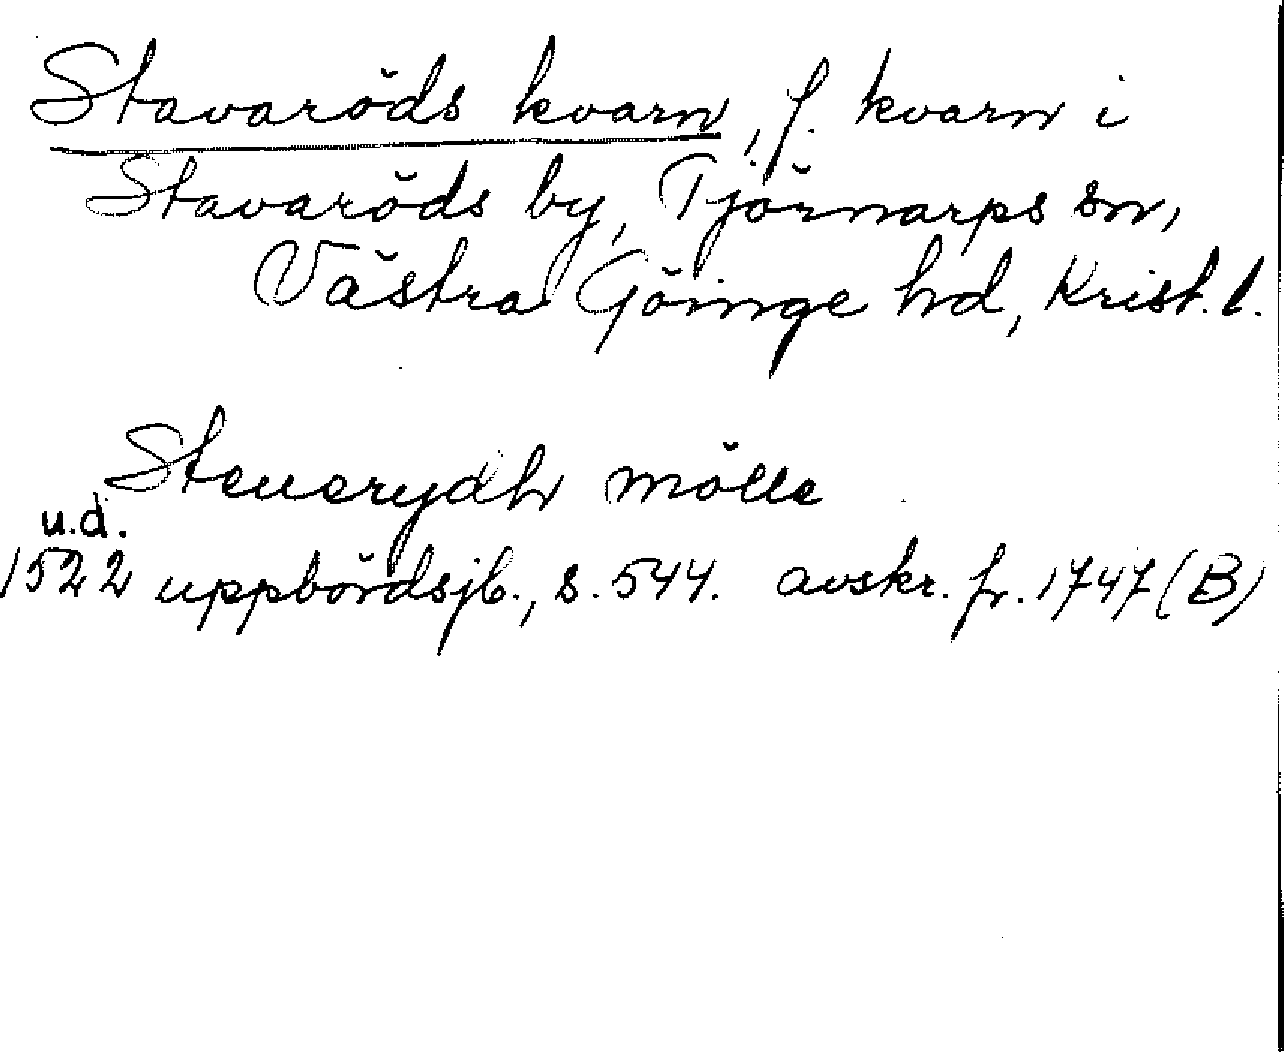 Stavaröds kvarn, f. kvarn i
Stavaröds by, Tjörnarps sn,
Västra Göinge hd, Krist. l.
Steuerydh mölle
u.d.
1522 uppbördsjb., s. 544. avskr. fr. 1747 (B)